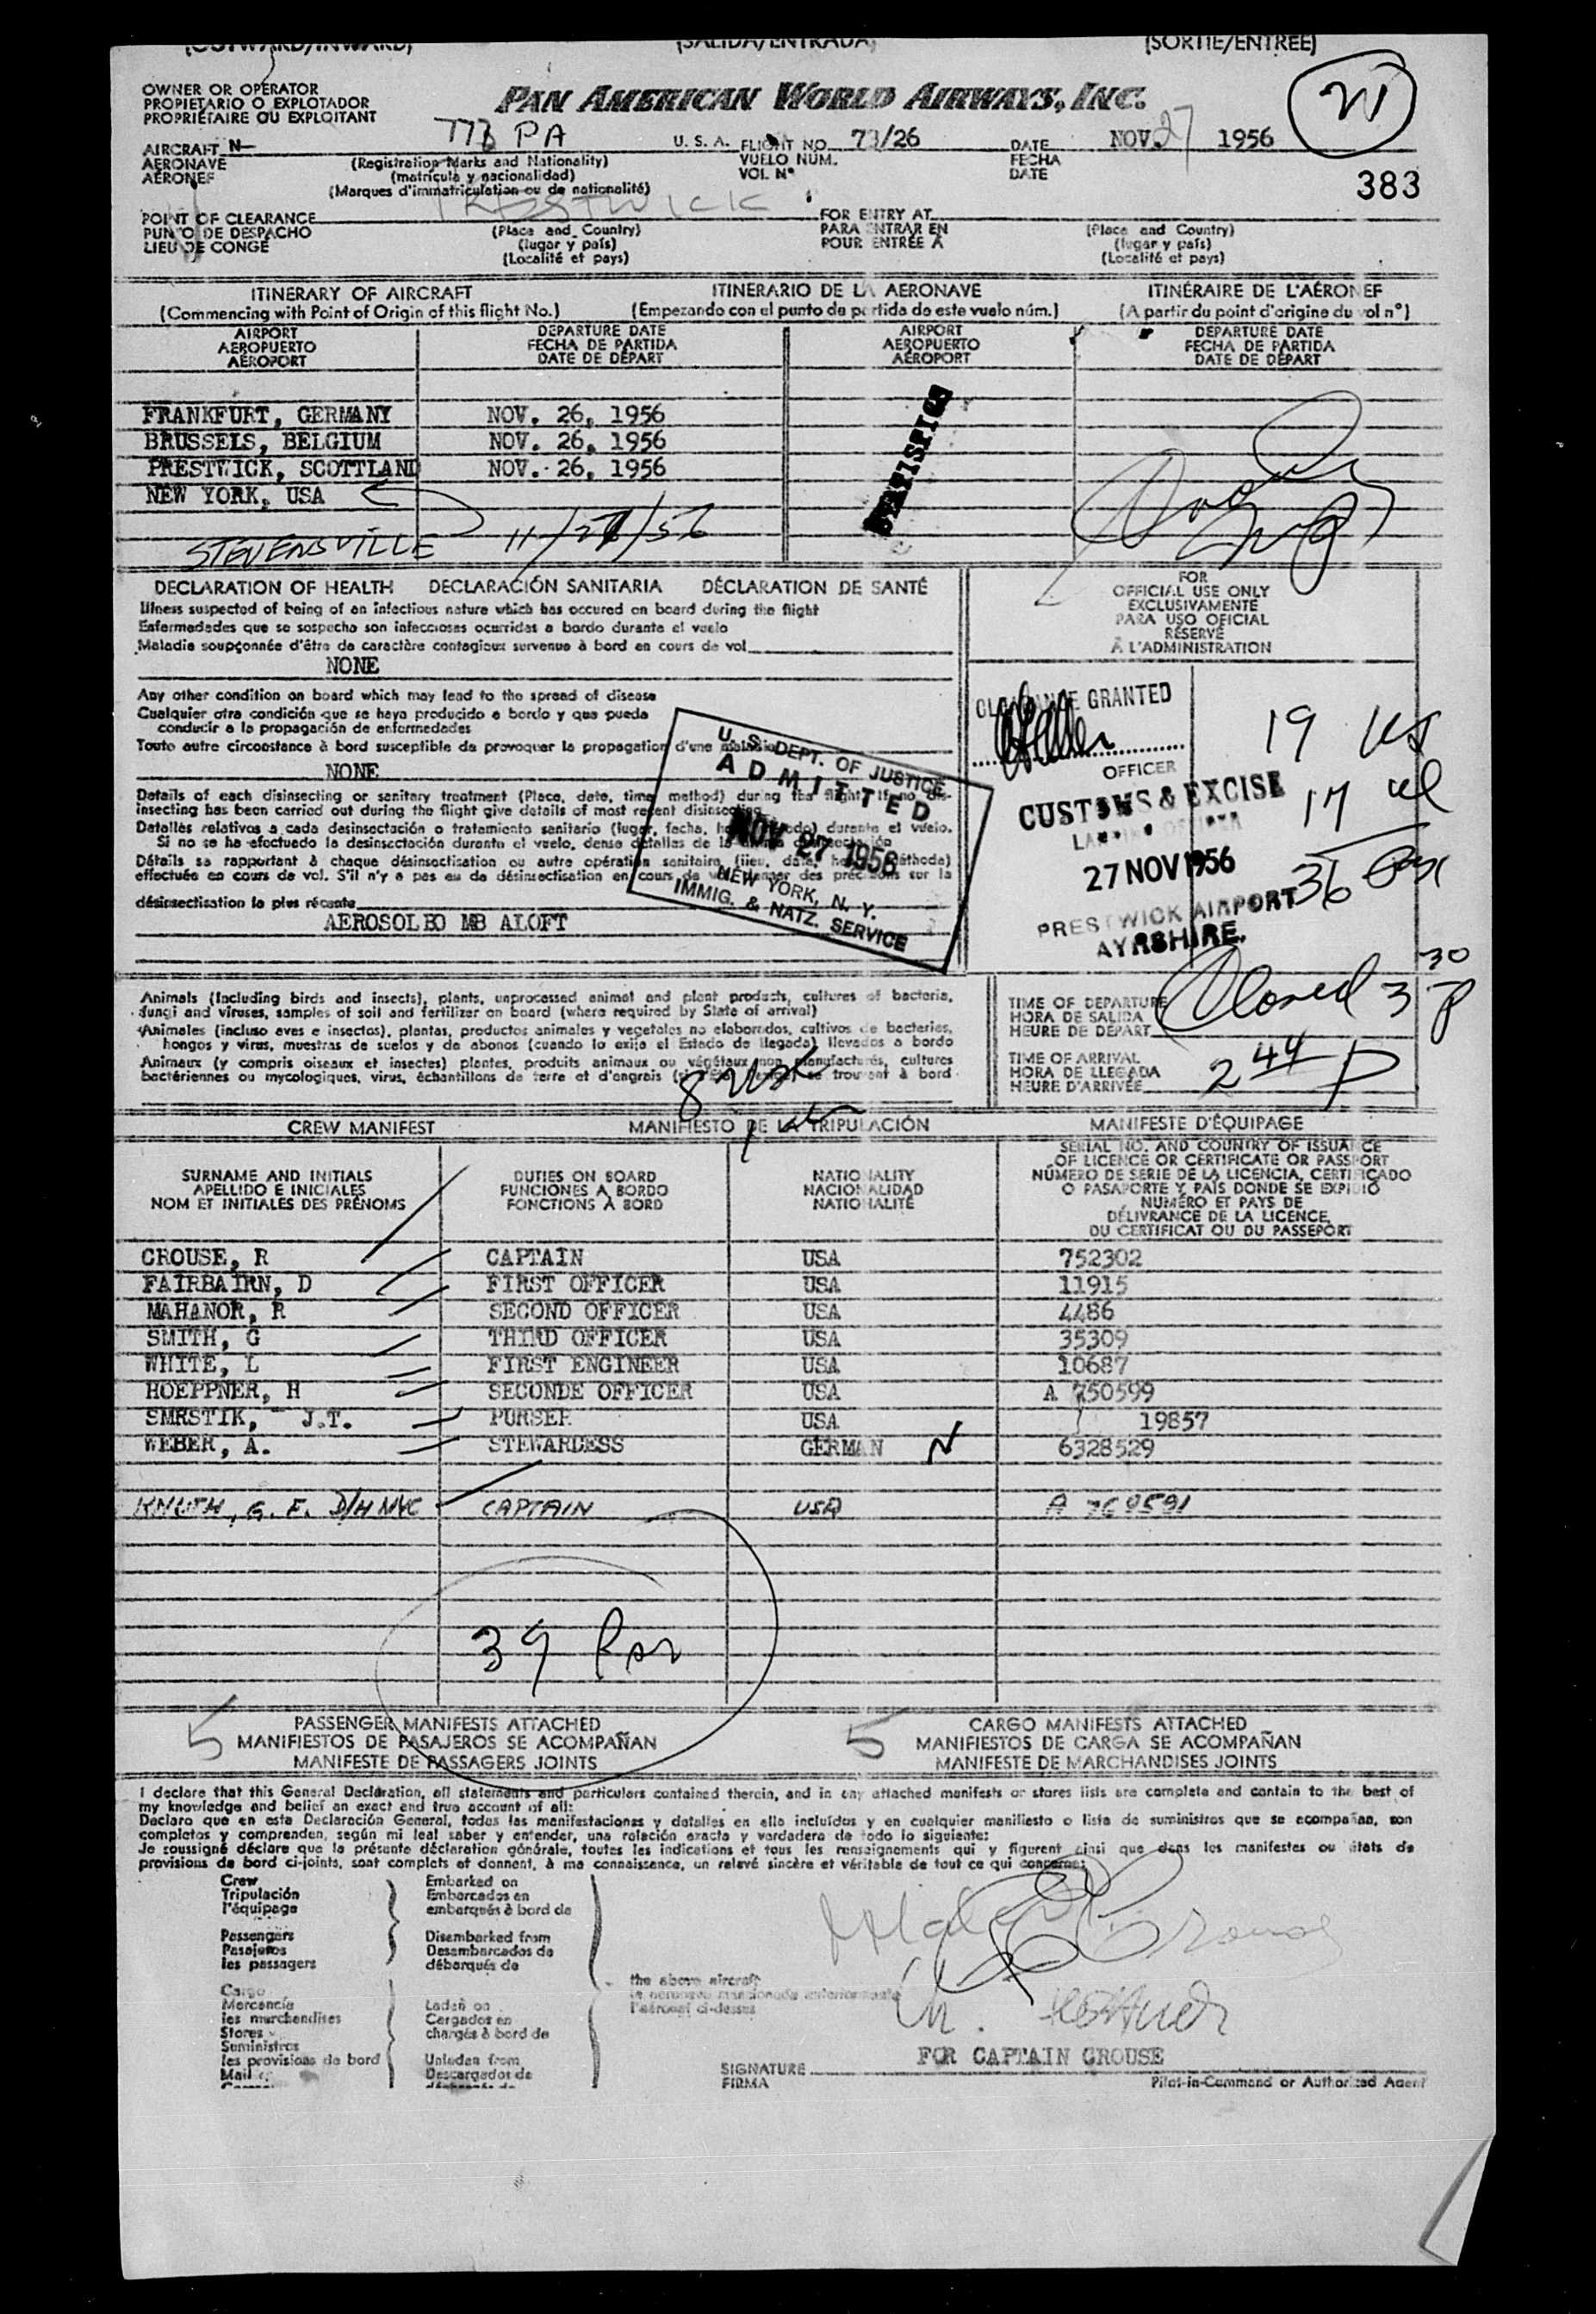 (OUTWARD/INWARD) (SALIDA/ENTRADA) (SORTIE/ENTRÉE)
OWNER OR OPERATOR
PROPIETARIO O EXPLOTADOR
PROPRIÉTAIRE OU EXPLOITANT
PAN AMERICAN WORLD AIRWAYS, INC.
AIRCRAFT N- PA U. S. A. FLIGHT NO. 73/26 DATE NOV 27 1956
AERONAVE (Registration Marks and Nationality) VUELO NÚM. FECHA
AÉRONEF (matrícula y nacionalidad) VOL. Nº DATE
(Marques d'immatriculation ou de nationalité)
383
PRESTWICK
POINT OF CLEARANCE FOR ENTRY AT
PUNTO DE DESPACHO (Place and Country) PARA ENTRAR EN (Place and Country)
LIEU DE CONGÉ (lugar y país) POUR ENTRÉE À (lugar y país)
(Localité et pays) (Localité et pays)
ITINERARY OF AIRCRAFT ITINERARIO DE LA AERONAVE ITINÉRAIRE DE L'AÉRONEF
(Commencing with Point of Origin of this flight No.) (Empezando con el punto de partida de este vuelo núm.) (A partir du point d'origine du vol nº)
AIRPORT DEPARTURE DATE AIRPORT DEPARTURE DATE
AEROPUERTO FECHA DE PARTIDA AEROPUERTO FECHA DE PARTIDA
AÉROPORT DATE DE DÉPART AÉROPORT DATE DE DÉPART
FRANKFURT, GERMANY NOV. 26, 1956
BRUSSELS, BELGIUM NOV. 26, 1956
PRESTWICK, SCOTTLAND NOV. 26, 1956
NEW YORK, USA
STEVENSVILLE 11/27/56
STATISTICS
DECLARATION OF HEALTH DECLARACIÓN SANITARIA DÉCLARATION DE SANTÉ
Illness suspected of being of an infectious nature which has occured on board during the flight
Enfermedades que se sospecha son infecciosas ocurridas a bordo durante el vuelo
Maladie soupçonnée d'être de caractère contagieux survenue à bord en cours de vol
NONE
Any other condition on board which may lead to the spread of disease
Cualquier otra condición que se haya producido a bordo y que pueda
conducir a la propagación de enfermedades
Toute autre circonstance à bord susceptible de provoquer la propagation d'une maladie
NONE
Details of each disinsecting or sanitary treatment (Place, date, time, method) during the flight. If no dis-
insecting has been carried out during the flight give details of most recent disinsecting
Detalles relativos a cada desinsectación o tratamiento sanitario (lugar, fecha, hora, método) durante el vuelo.
Si no se ha efectuado la desinsectación durante el vuelo, dense detalles de la última desinsectación
Détails se rapportant à chaque désinsectisation ou autre opération sanitaire (lieu, date, heure, méthode)
effectuée en cours de vol. S'il n'y a pas eu de désinsectisation en cours de vol donner des précisions sur la
désinsectisation la plus récente
AEROSOL BO MB ALOFT
U. S. DEPT. OF JUSTICE
ADMITTED
NOV 27 1956
NEW YORK, N. Y.
IMMIG. & NATZ. SERVICE
FOR
OFFICIAL USE ONLY
EXCLUSIVAMENTE
PARA USO OFICIAL
RÉSERVÉ
À L'ADMINISTRATION
CLEARANCE GRANTED
OFFICER
CUSTOMS & EXCISE
27 NOV 1956
PRESTWICK AIRPORT
AYRSHIRE.
19 US
17
36
Animals (including birds and insects), plants, unprocessed animal and plant products, cultures of bacteria,
fungi and viruses, samples of soil and fertilizer on board (where required by State of arrival)
Animales (incluso aves e insectos), plantas, productos animales y vegetales no elaborados, cultivos de bacterias,
hongos y virus, muestras de suelos y de abonos (cuando lo exija el Estado de llegada) llevados a bordo
Animaux (y compris oiseaux et insectes) plantes, produits animaux ou végétaux non manufacturés, cultures
bactériennes ou mycologiques, virus, échantillons de terre et d'engrais (si l'État l'exige) se trouvant à bord
TIME OF DEPARTURE
HORA DE SALIDA
HEURE DE DÉPART
Closed 3 30 P
TIME OF ARRIVAL
HORA DE LLEGADA
HEURE D'ARRIVÉE
2 44 P
CREW MANIFEST MANIFIESTO DE LA TRIPULACIÓN MANIFESTE D'ÉQUIPAGE
SURNAME AND INITIALS
APELLIDO E INICIALES
NOM ET INITIALES DES PRÉNOMS
DUTIES ON BOARD
FUNCIONES A BORDO
FONCTIONS À BORD
NATIONALITY
NACIONALIDAD
NATIONALITÉ
SERIAL NO. AND COUNTRY OF ISSUANCE
OF LICENCE OR CERTIFICATE OR PASSPORT
NÚMERO DE SERIE DE LA LICENCIA, CERTIFICADO
O PASAPORTE Y PAÍS DONDE SE EXPIDIÓ
NUMÉRO ET PAYS DE
DÉLIVRANCE DE LA LICENCE,
DU CERTIFICAT OU DU PASSEPORT
CROUSE, R CAPTAIN USA 752302
FAIRBAIRN, D FIRST OFFICER USA 11915
MAHANOR, R SECOND OFFICER USA 4486
SMITH, G THIRD OFFICER USA 35309
WHITE, L FIRST ENGINEER USA 10687
HOEPPNER, H SECONDE OFFICER USA A 750599
SMRSTIK, J.T. PURSER USA 19857
WEBER, A. STEWARDESS GERMAN 6328529
KNUTH, G. F. D/H NYC CAPTAIN USA A 769591
39 Pax
5 PASSENGER MANIFESTS ATTACHED 5 CARGO MANIFESTS ATTACHED
MANIFIESTOS DE PASAJEROS SE ACOMPAÑAN MANIFIESTOS DE CARGA SE ACOMPAÑAN
MANIFESTE DE PASSAGERS JOINTS MANIFESTE DE MARCHANDISES JOINTS
I declare that this General Declaration, all statements and particulars contained therein, and in any attached manifests or stores lists are complete and contain to the best of
my knowledge and belief an exact and true account of all:
Declaro que en esta Declaración General, todas las manifestaciones y detalles en ella incluídos y en cualquier manifiesto o lista de suministros que se acompañan, son
completos y comprenden, según mi leal saber y entender, una relación exacta y verdadera de todo lo siguiente:
Je soussigné déclare que la présente déclaration générale, toutes les indications et tous les renseignements qui y figurent ainsi que dans les manifestes ou états de
provisions de bord ci-joints, sont complets et donnent, à ma connaissance, un relevé sincère et véritable de tout ce qui concerne:
Crew Embarked on
Tripulación Embarcados en
l'équipage embarqués à bord de
Passengers Disembarked from
Pasajeros Desembarcados de
les passagers débarqués de
the above aircraft
la aeronave mencionada anteriormente
l'aéronef ci-dessus
Cargo
Mercancía Laden on
les marchandises Cargados en
Stores chargés à bord de
Suministros
les provisions de bord Unladen from
Mail Descargados de
FOR CAPTAIN CROUSE
SIGNATURE
FIRMA
Pilot-in-Command or Authorized Agent